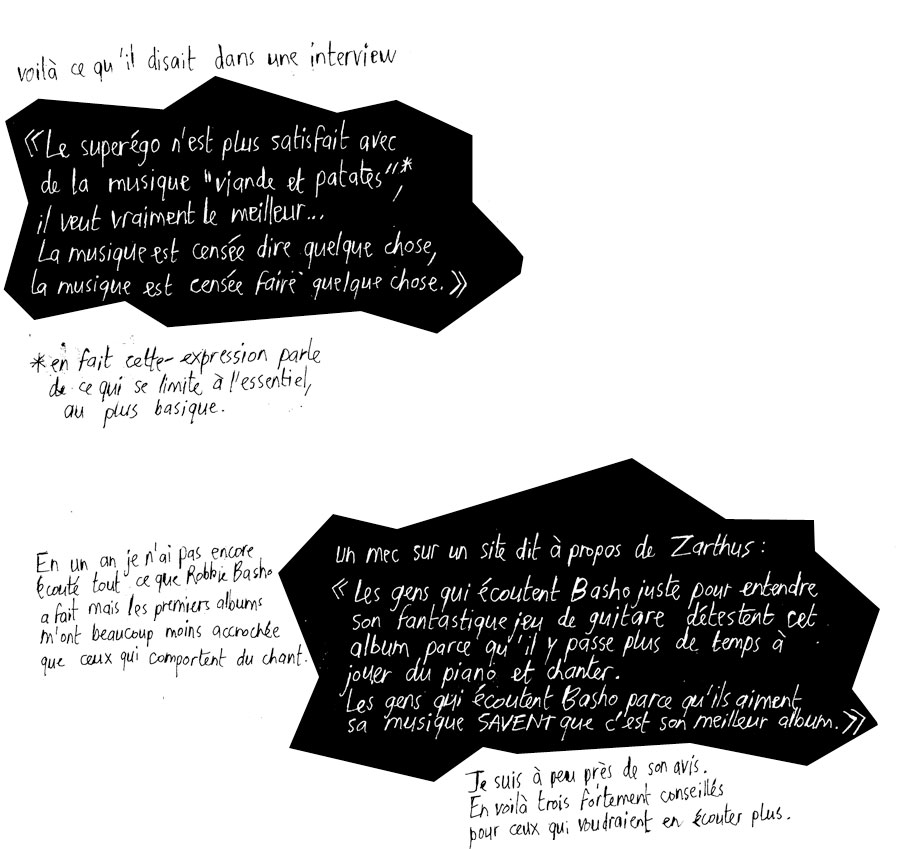 voilà ce qu'il disait dans une interview
« Le superégo n'est plus satisfait avec
de la musique "viande et patates"*,
il veut vraiment le meilleur...
La musique est censée dire quelque chose,
la musique est censée faire quelque chose. »
* en fait cette expression parle
de ce qui se limite à l'essentiel,
au plus basique.
En un an je n'ai pas encore
écouté tout ce que Robbie Basho
a fait mais les premiers albums
m'ont beaucoup moins accrochée
que ceux qui comportent du chant.
un mec sur un site dit à propos de Zarthus :
« Les gens qui écoutent Basho juste pour entendre
son fantastique jeu de guitare détestent cet
album parce qu'il y passe plus de temps à
jouer du piano et chanter.
Les gens qui écoutent Basho parce qu'ils aiment
sa musique SAVENT que c'est son meilleur album. »
Je suis à peu près de son avis.
En voilà trois fortement conseillés
pour ceux qui voudraient en écouter plus.